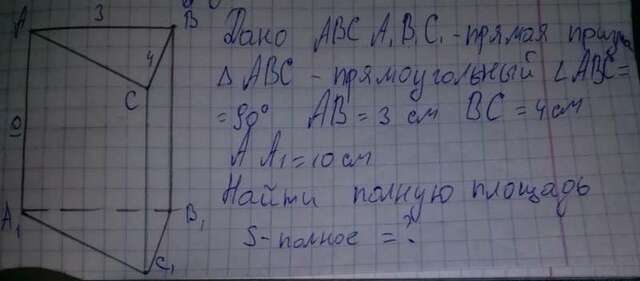 A
3
B
4
C
10
A₁
B₁
C₁
Дано ABC A₁B₁C₁ - прямая призма
Δ ABC - прямоугольный ∠ABC=
=90° AB = 3 см BC = 4см
A A₁=10см
Найти полную площадь
S-полное = ?